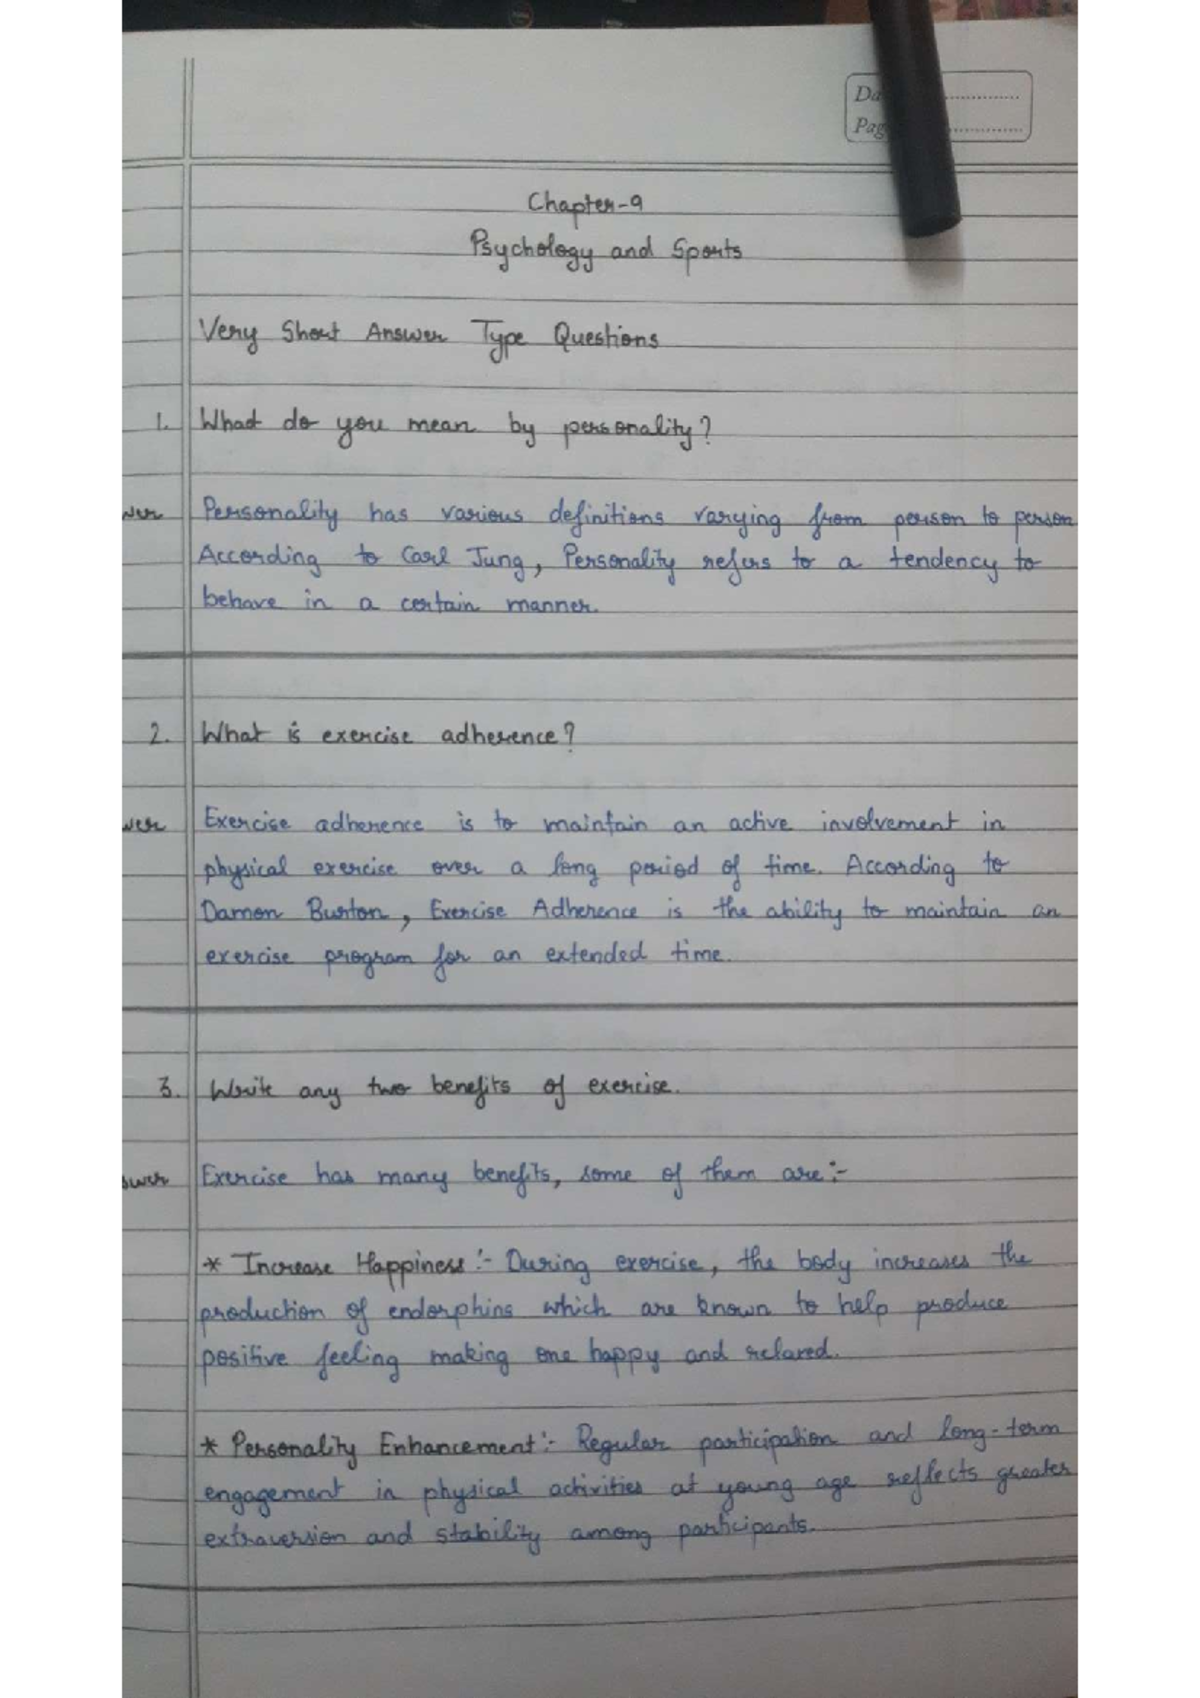 Chapter-9
Psychology and Sports
Very Short Answer Type Questions
1. What do you mean by personality?
wer Personality has various definitions varying from person to person
According to Carl Jung, Personality refers to a tendency to
behave in a certain manner.
2. What is exercise adherence?
wer Exercise adherence is to maintain an active involvement in
physical exercise over a long period of time. According to
Damon Burton, Exercise Adherence is the ability to maintain an
exercise program for an extended time.
3. Write any two benefits of exercise.
swer Exercise has many benefits, some of them are:-
* Increase Happiness:- During exercise, the body increases the
production of endorphins which are known to help produce
positive feeling making one happy and relaxed.
* Personality Enhancement:- Regular participation and long-term
engagement in physical activities at young age reflects greater
extraversion and stability among participants.